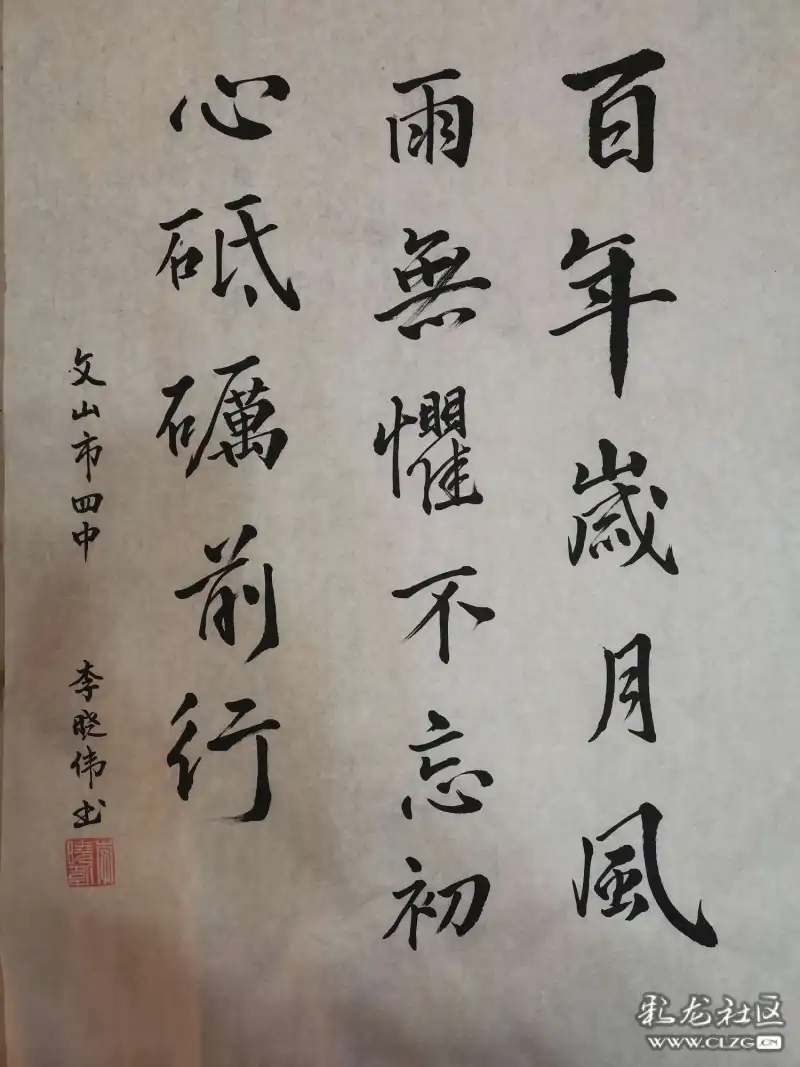 百年歲月風
雨無懼不忘初
心砥礪前行
文山市四中 李晓伟书
彩龙社区
WWW.CLZG.CN